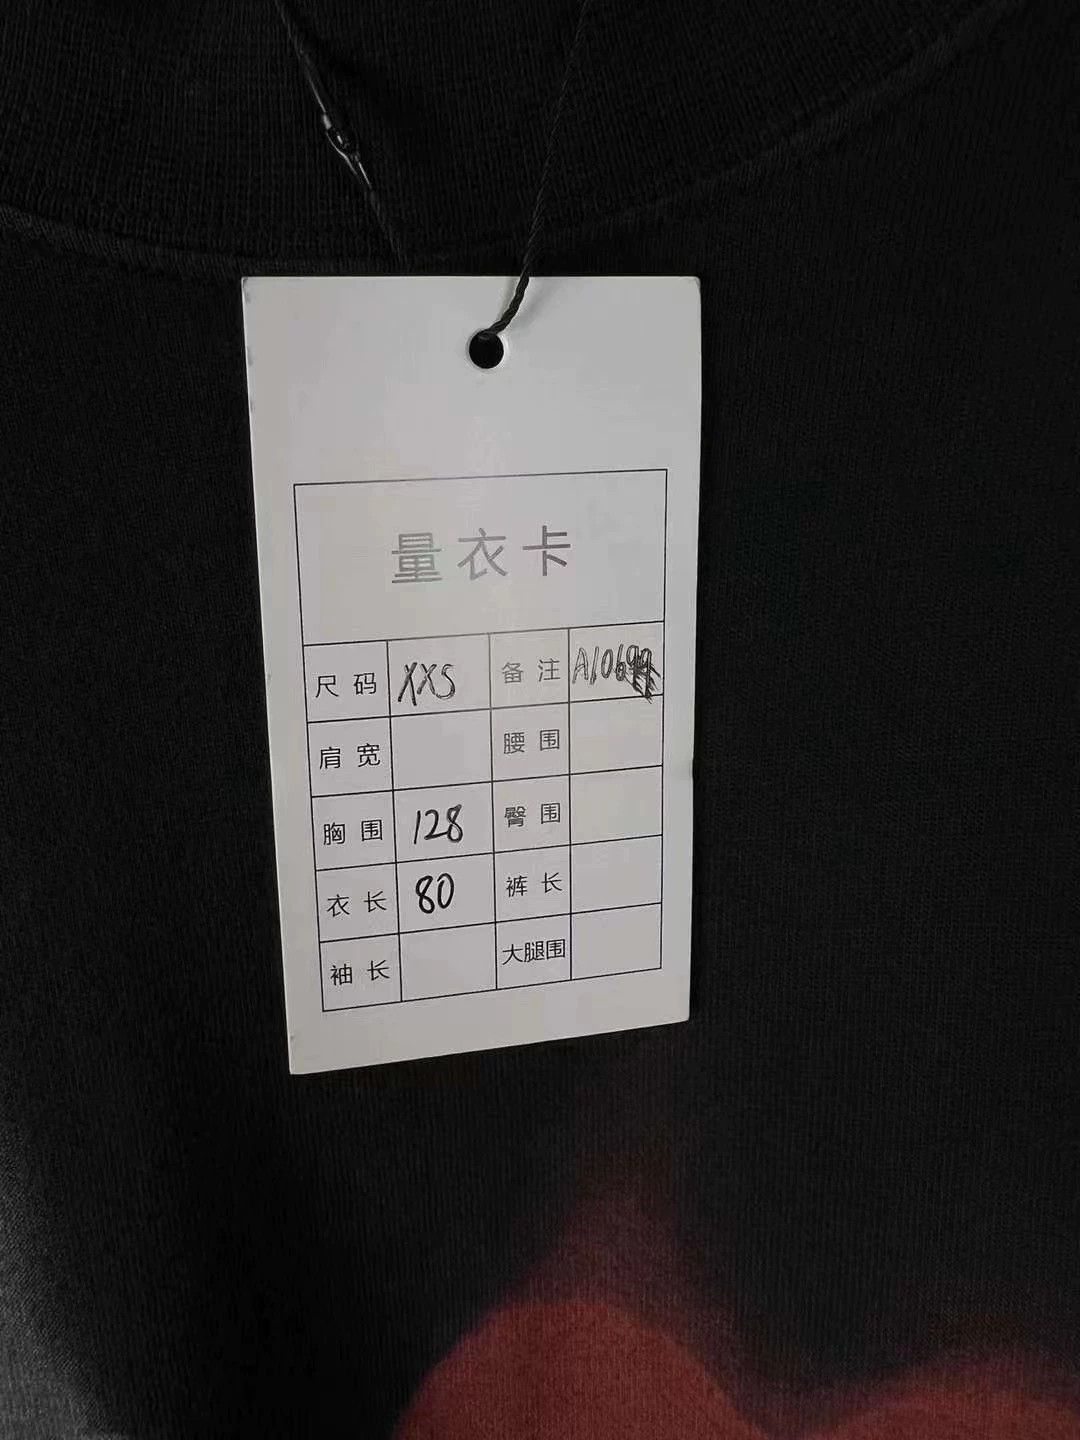 量衣卡
尺码 XXS 备注 A106
肩宽 腰围
胸围 128 臀围
衣长 80 裤长
袖长 大腿围